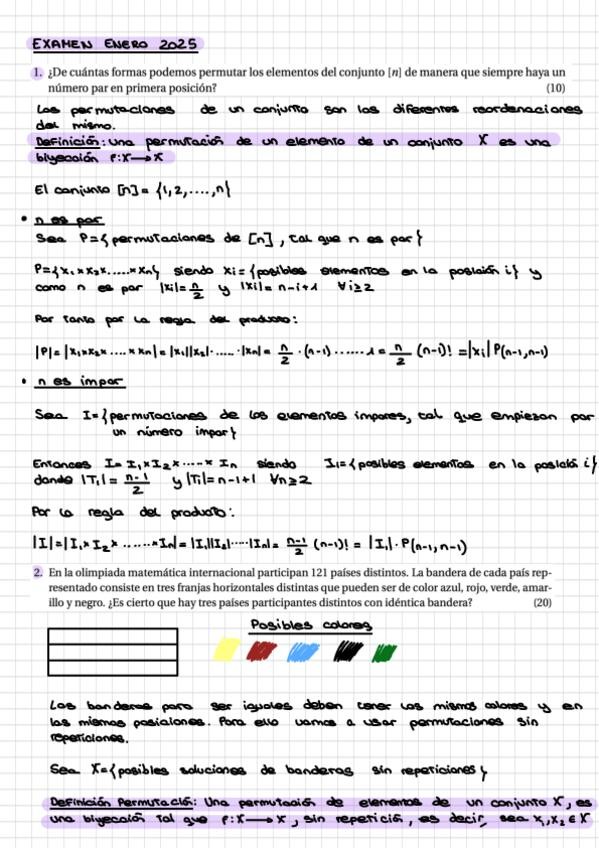 EXAMEN ENERO 2025
1. ¿De cuántas formas podemos permutar los elementos del conjunto [n] de manera que siempre haya un
número par en primera posición? (10)
Las permutaciones de un conjunto son las diferentes reordenaciones
del mismo.
Definición: una permutación de un elemento de un conjunto X es una
biyección f:X→X
El conjunto [n]= {1,2,....,n}
• n es par
Sea P={permutaciones de [n], tal que n es par}
P={x₁×x₂×.....×xₙ} siendo xi={posibles elementos en la posición i} y
como n es par |xi|= n/2 y |xi|=n-i+1 ∀i≥2
Por tanto por la regla del producto:
|P|=|x₁×x₂×....×xₙ|=|x₁||x₂|·.....·|xₙ|= n/2 ·(n-1)......1= n/2 (n-1)! =|x₁| P(n-1,n-1)
• n es impar
Sea I={permutaciones de los elementos impares, tal que empiezan por
un número impar}
Entonces I= I₁×I₂×.....× Iₙ siendo I₁={posibles elementos en la posición i}
donde |T₁|= n-1/2 y |Ti|=n-1+1 ∀n≥2
Por la regla del producto:
|I|=|I₁×I₂×......×Iₙ|=|I₁||I₂|·....|Iₙ|= n-1/2 (n-1)! = |I₁|·P(n-1,n-1)
2. En la olimpiada matemática internacional participan 121 países distintos. La bandera de cada país rep-
resentado consiste en tres franjas horizontales distintas que pueden ser de color azul, rojo, verde, amar-
illo y negro. ¿Es cierto que hay tres países participantes distintos con idéntica bandera? (20)
Posibles colores
Las banderas para ser iguales deben tener los mismos colores y en
las mismas posiciones. Para ello vamos a usar permutaciones sin
repeticiones.
Sea X={posibles soluciones de banderas sin repeticiones}
Definición Permutación: Una permutación de elementos de un conjunto X, es
una biyección tal que f:X→X, sin repetición, es decir, sea x₁,x₂ ∈ X